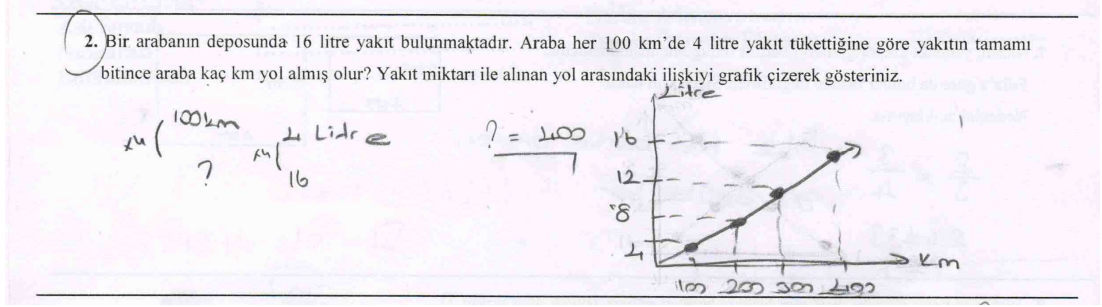 2. Bir arabanın deposunda 16 litre yakıt bulunmaktadır. Araba her 100 km'de 4 litre yakıt tükettiğine göre yakıtın tamamı
bitince araba kaç km yol almış olur? Yakıt miktarı ile alınan yol arasındaki ilişkiyi grafik çizerek gösteriniz.
Litre
x4 ( 100km
4 Litre
? = 400
?
x4 (
16
16
12
8
4
km
100 200 300 400